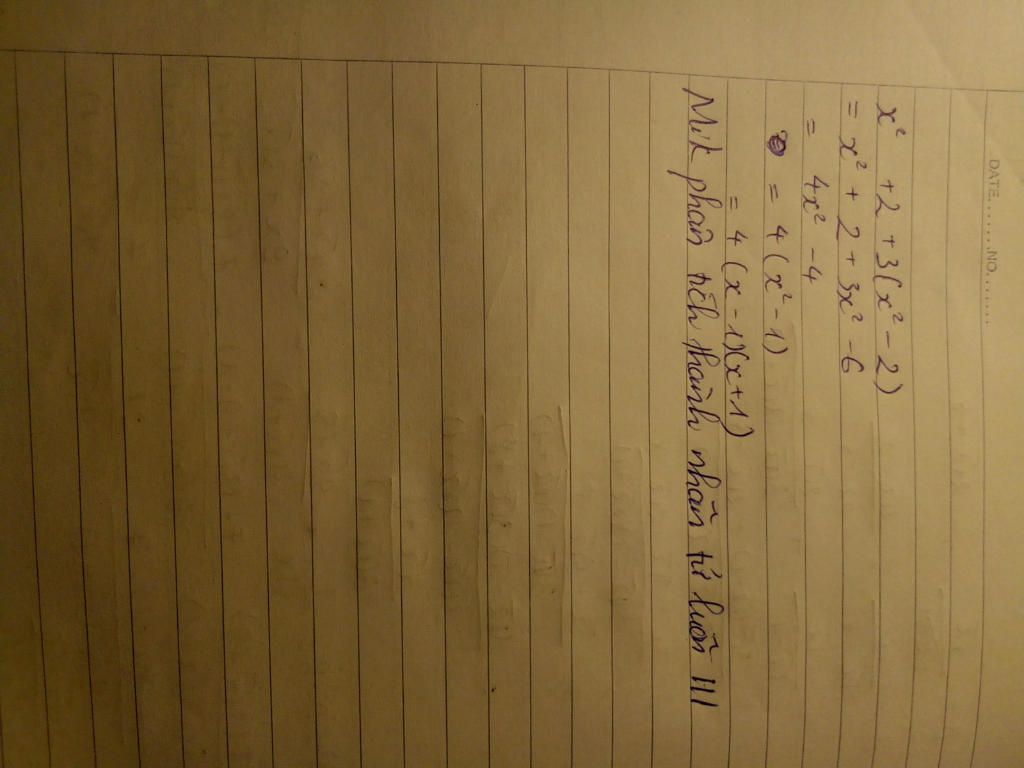 DATE.......NO........
x² + 2 + 3(x² - 2)
= x² + 2 + 3x² - 6
= 4x² - 4
= 4(x² - 1)
= 4(x - 1)(x + 1)
phân tích thành nhân tử luôn !!!